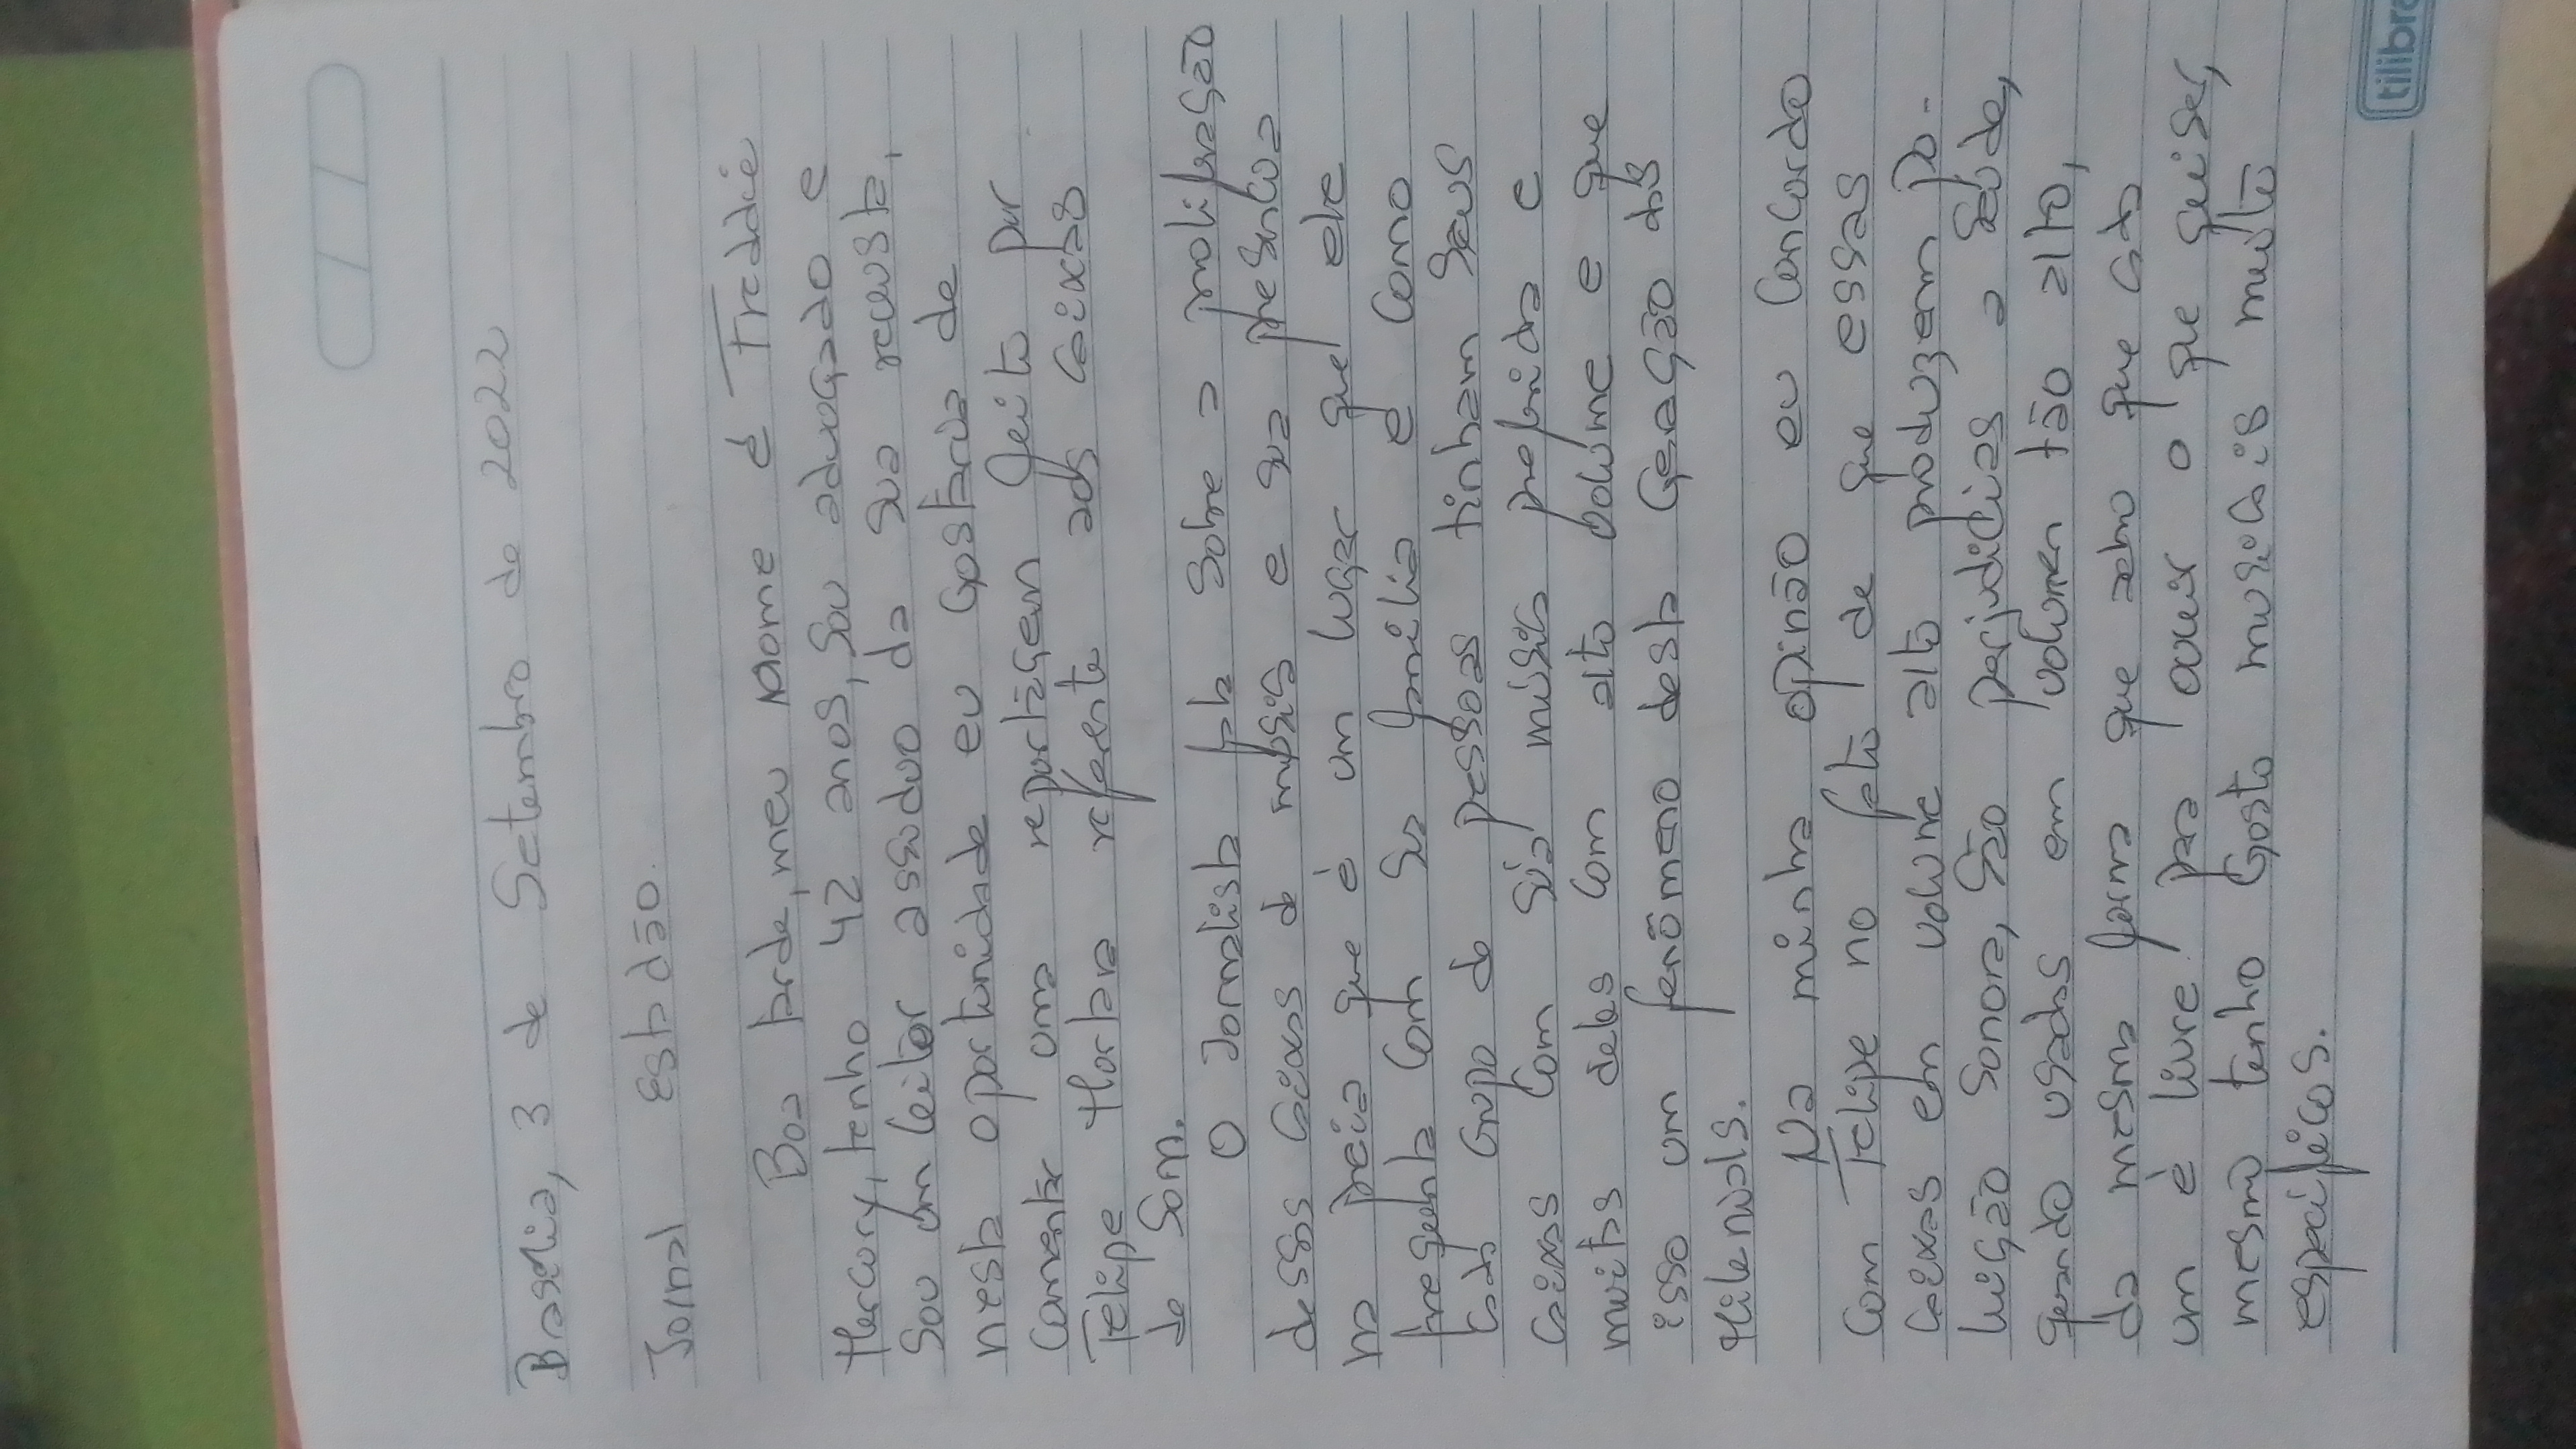 Brasília, 3 de Setembro de 2022
Jornal Estadão.
Boa tarde, meu nome é Freddie
Mercury, tenho 42 anos, sou advogado e
Sou um leitor assíduo da sua revista,
nesta oportunidade eu gostaria de
comentar uma reportagem feito por
Felipe Mortara referente ads caixas
de som.
O Jornalista fala sobre a proliferação
dessas caixas de música e sua presença
na praia que é um lugar que ele
frequenta com sua família e como
cada grupo de pessoas tinham seus
caixas com sua música preferida e
muitas delas com alto volume e que
isso um fenômeno desta geração dos
Milenials.
Na minha opinão eu concordo
com Felipe no fato de que essas
caixas em volume alto produzem po-
luição sonora, são perjudicias a saúde,
quando usadas em volumen tão alto,
da mesma forma que acho que cada
um é livre para ouvir o que quiser,
mesmo tenho gosto musicais muito
específicos.
tilibra